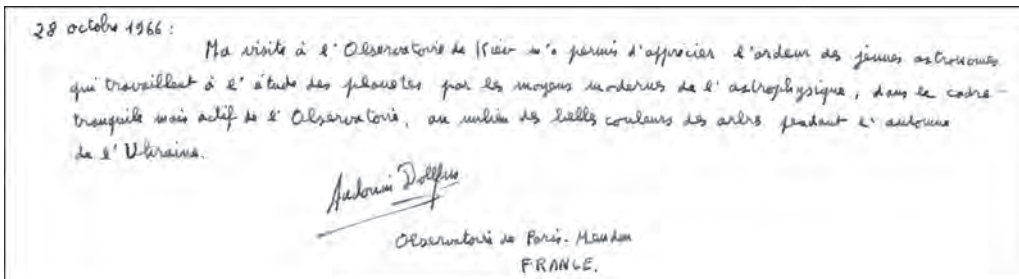 28 octobre 1966 :
Ma visite à l'Observatoire de Kiev m'a permis d'apprécier l'ardeur des jeunes astronomes
qui travaillent à l'étude des planètes par les moyens modernes de l'astrophysique, dans le cadre
tranquile mais actif de l'Observatoire, au milieu des belles couleurs des arbres pendant l'automne
de l'Ukraine.
Audouin Dollfus
Observatoire de Paris-Meudon
FRANCE.